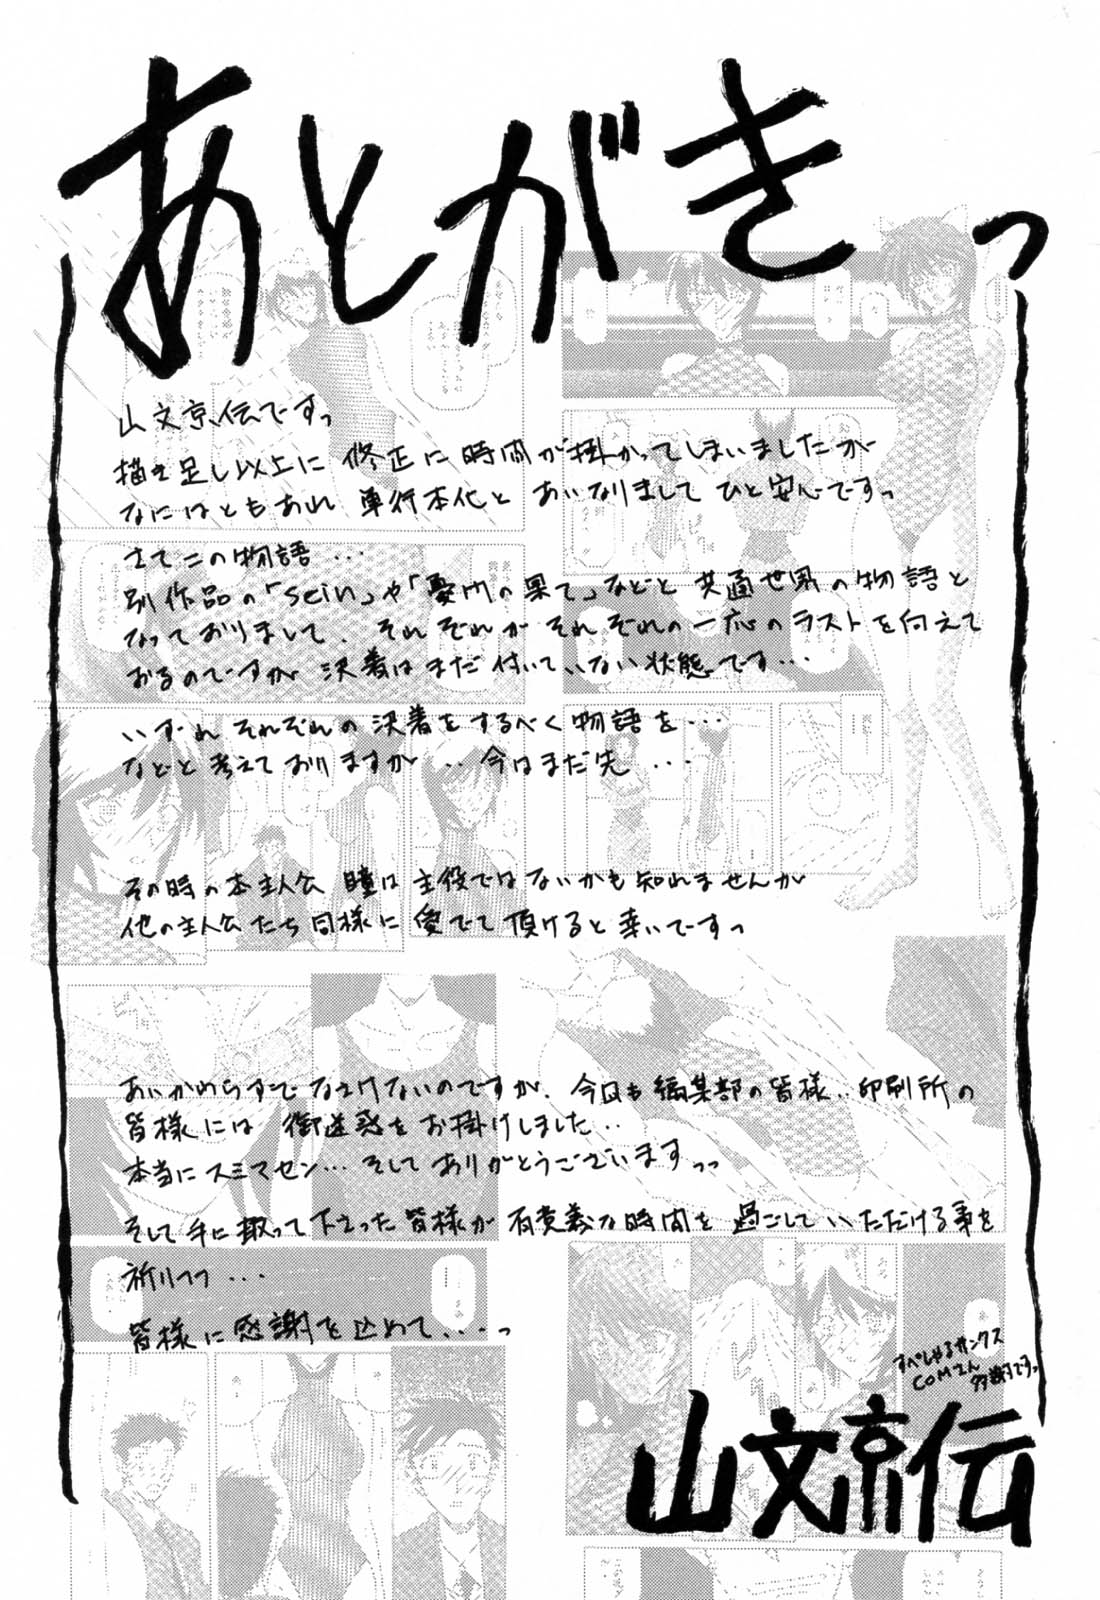 あとがきっ
山文京伝ですっ
描き足し以上に 修正に時間が掛かってしまいましたが
なにはともあれ 単行本化と あいなりまして ひと安心ですっ
さてこの物語・・・
別作品の「Sein」や「憂悶の果て」などと 共通世界の物語と
なっておりまして、それぞれが それぞれの一応のラストを向えて
おるのですが 決着はまだ付いていない状態です・・・
いずれ それぞれの決着をするべく物語を・・・
などと考えておりますが・・今はまだ先・・・
その時の本主人公 瞳は主役ではないかも知れませんが
他の主人公たち同様に愛でて頂けると幸いですっ
あいかわらずでなさけないのですが、今回も編集部の皆様・・印刷所の
皆様には 御迷惑をお掛けしました・・
本当にスミマセン・・・そして ありがとうございますっっ
そして手に取って下さった皆様が 有意義な時間を 過ごしていただける事を
祈りつつ・・・
皆様に感謝を込めて・・・っ
すぺしゃるサンクス
COMさん
多謝ですっ
山文京伝